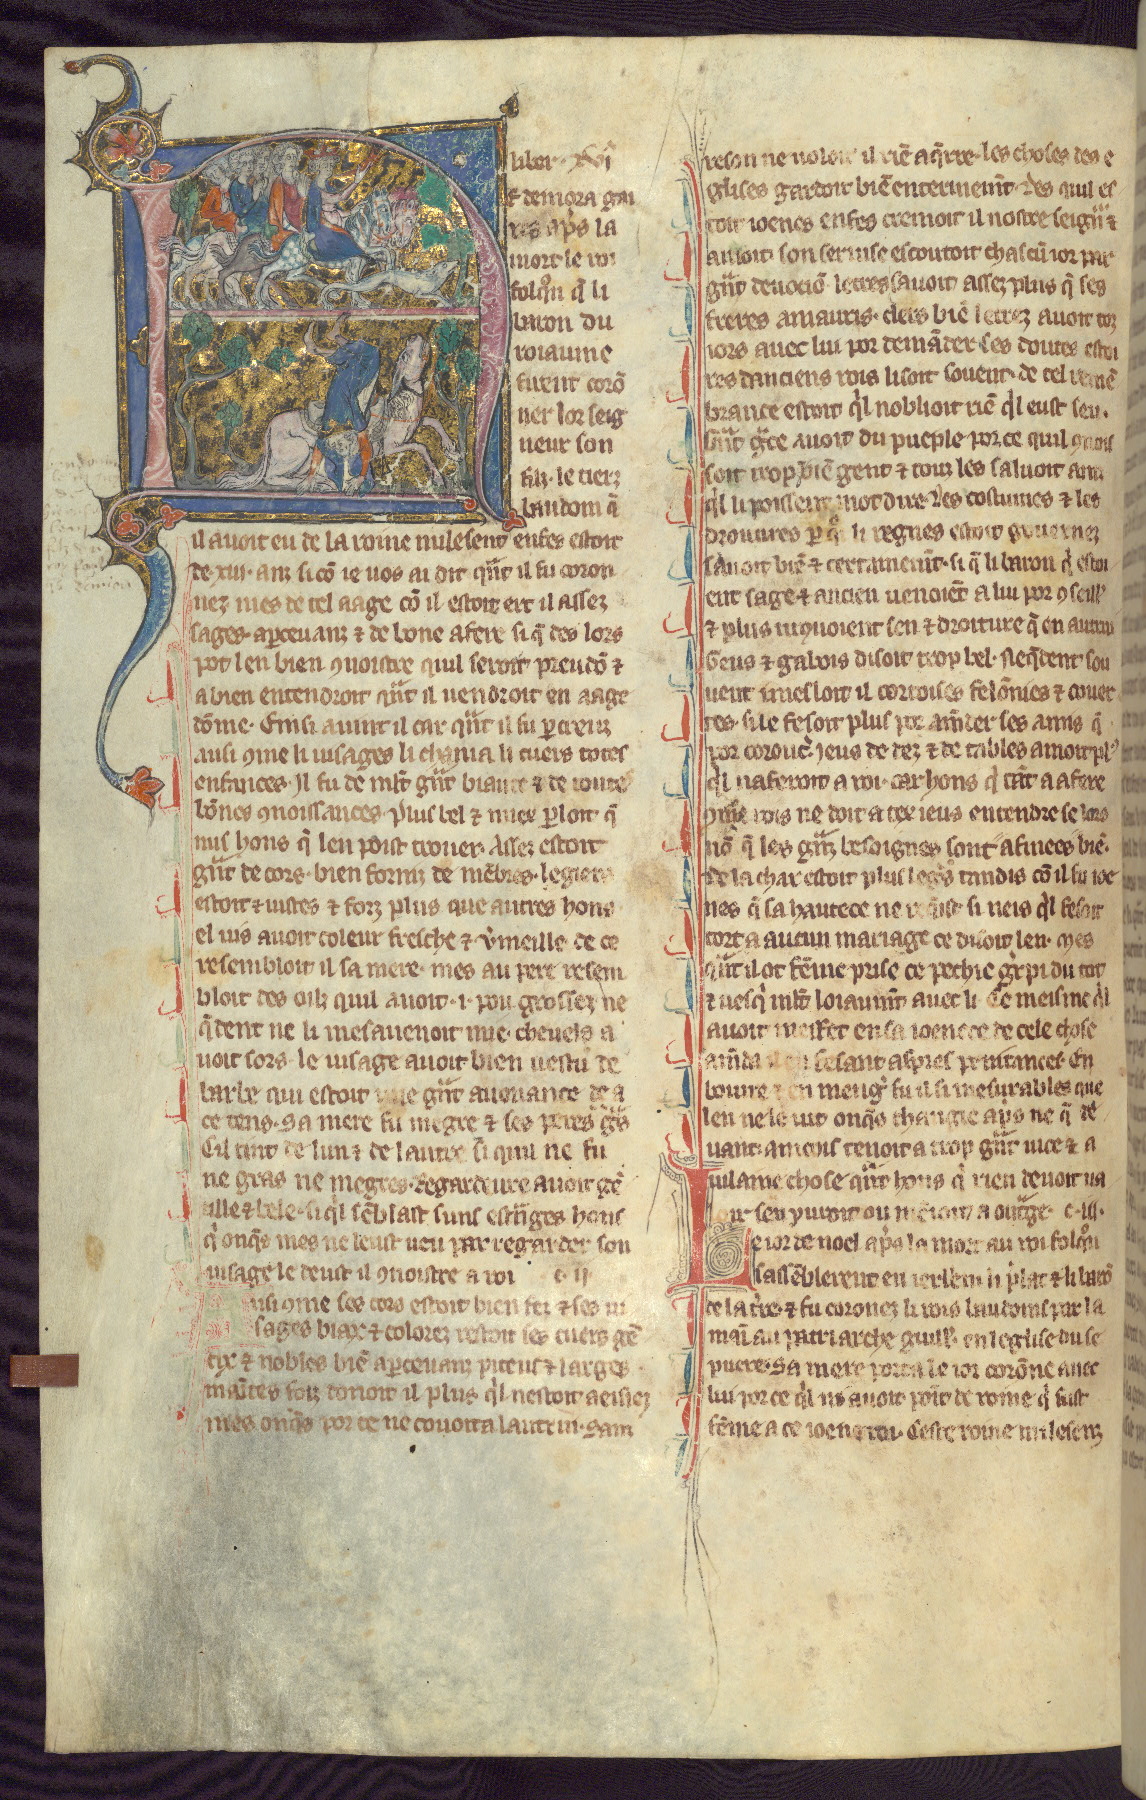 liber xvi
t demora gai
res ap̃s la
mort le roi
folq̃n q̃ li
baron du
roiaume
firent corõ
ner lor seig
neur son
filz. le tierz
baudoin q̃
il avoit eu de la roine milesent enfes estoit
de .xiii. anz si cõ ie vos ai dit qñt il fu coron
nez. mes de tel aage cõ il estoit ert il assez
sages. apcevanz & de bone afere si q̃ des lors
pot len bien ꝯnoistre quil seroit preudõ &
a bien entendroit qñt il vendroit en aage
dõme. Einsi avint il car qñt il fu pcreuz
ausi ꝯme li visages li chania li cuers totes
enfances. Il fu de mlt̃ gñt biaute & de toute
bõnes ꝯnoissances. Plus bel & miex ploit q̃
nus hons q̃ len poist trover. Assez estoit
gñt de cors. bien forniz de mẽbres. legiers
estoit & vistes & forz plus que autres hons
el vis avoit coleur fresche & ṽmeille. de ce
resembloit il sa mere. mes au pere resem
bloit des eilz quil avoit .i. pou grossez ne
q̃dent ne li mesavenoit mie. chevels a
voit sors. le visage avoit bien vestu de
barbe qui estoit une gñt avenance de a
ce tens. Sa mere fu megre & ses peres g̃s
Cil tint de lun & de lautre si quil ne fu
ne gras ne megres. Regardeure avoit gẽ
tille & bele. si q̃l sẽblast suns estrãges hons
q̃ onq̃s mes ne leust veu par regarder son
visage le deust il ꝯnoistre a roi c. ij
usi ꝯme ses cors estoit bien fez & ses vi
sages biax & colorez restoit ses cuers gẽ
tix & nobles biẽ apcevanz piteus & larges
maĩtes foiz donoit il plus q̃l nestoit aeisiez
mes onq̃s por ce ne covoita lautrui. Sanz
reson ne voloit il riẽ aq̃rre. les choses des e
glises gardoit biẽ enterinemt̃. Des quil es
toit ioenes enfes cremoit il nostre seigñr &
amoit. son servise escoutoit chascũ ior par
gñt devociõ. letres savoit assez plus q̃ ses
freres amauris. clers biẽ letrez avoit toz
iors avec lui por demãder ses doutes estoi
res danciens rois lisoit sovent. de tel remẽ
brance estoit q̃l noblioit riẽ q̃l eust seu.
gñt g̃ce avoit du pueple por ce quil ꝯnois
soit trop biẽ gent & touz les saluoit ainz
q̃l li poissent mot dire. Les costumes & les
droitures p q̃ li regnes estoit governez
savoit biẽ & certainemt̃. si q̃ li baron q̃ estoi
ent sage & ancien venoiẽt a lui por ꝯseill
& plus li trovoient sen & droiture q̃ en autrui
Geus & gabois disoit trop bel. Neq̃dent sou
vent i mesloit il cortoises felõnies & cover
tes. si le fesoit plus por amẽder ses amis q̃
por coroucr̃. Jeus de dez & de tables amoit pl
q̃l naferoit a roi. car hons q̃ tãt a a fere
ꝯme rois ne doit a tex ieus entendre se lors
nõ q̃ les gñz besoignes sont afinees biẽ.
de la char estoit plus legiers tandis cõ il fu ioe
nes q̃ sa hautece ne req̃ist. si neis q̃l fesoit
tort a aucun mariage ce disoit len. Mes
qñt il ot fẽme prise ce pechie g̃rpi du tot
& vesq̃ mlt̃ loiaumt̃ avec li. Ce meisme q̃l
avoit meffet en sa ioenece de cele chose
amẽda il en fesant aspres penitances. En
boivre & en mengr̃ fu il si mesurables que
len ne le vit onq̃s changie ap̃s ne q̃ de
vant. ancois tenoit a trop gñt vice & a
vilaine chose qñt hons q̃ rien devoit va
loir sen yvroit ou mẽioit a outr̃ge c. iij.
e ior de noel ap̃s la mort au roi folq̃n
sassẽblerent en ierlem li plat & li barõ
de la tr̃e. & fu coronez li rois baudoins par la
maĩ au patriarche guill. en leglise du se
pucre. Sa mere porta le ior corõne avec
lui por ce q̃l ni avoit poĩt de roine q̃ fust
fẽme a ce ioene roi. Ceste roine milesenz